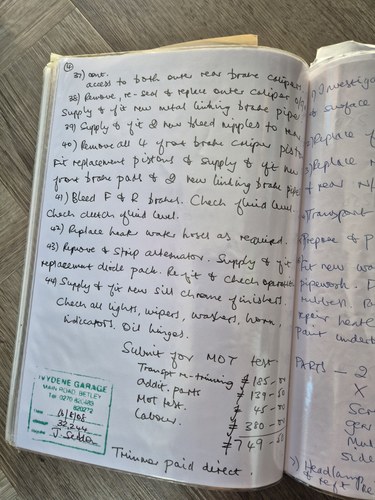 ④
37) cont.
access to both outer rear brake calipers.
38) Remove, re-seal & replace outer caliper
Supply & fit new metal linking brake pipes
39) Supply & fit 2 new bleed nipples to rear
40) Remove all 4 front brake caliper pistons
Fit replacement pistons & supply & fit new
front brake pads & 2 new linking brake pipes
41) Bleed F & R brakes. Check fluid level.
Check clutch fluid level.
42) Replace heater water hoses as required.
43) Remove & Strip alternator. Supply & fit
replacement diode pack. Re-fit & check operation
44) Supply & fit new sill chrome finishers.
Check all lights, wipers, washers, horn,
Indicators. Oil hinges.
Submit for MOT test.
Transpt re-trimming £ 185-00
Addit. parts £ 139-50
MOT test. £ 45-00
Labour. £ 380-00
£ 749-50
IVYDENE GARAGE
MAIN ROAD, BETLEY
Tel: 0270
820272
Trimmer paid direct.
Investiga
surface
Replace
Replace
rear
Transport
Prepare & P
Fit new
pipework.
repair heate
paint undert
PARTS – 2
X
Scr
gen
Mul
side
Headlamp
& refit